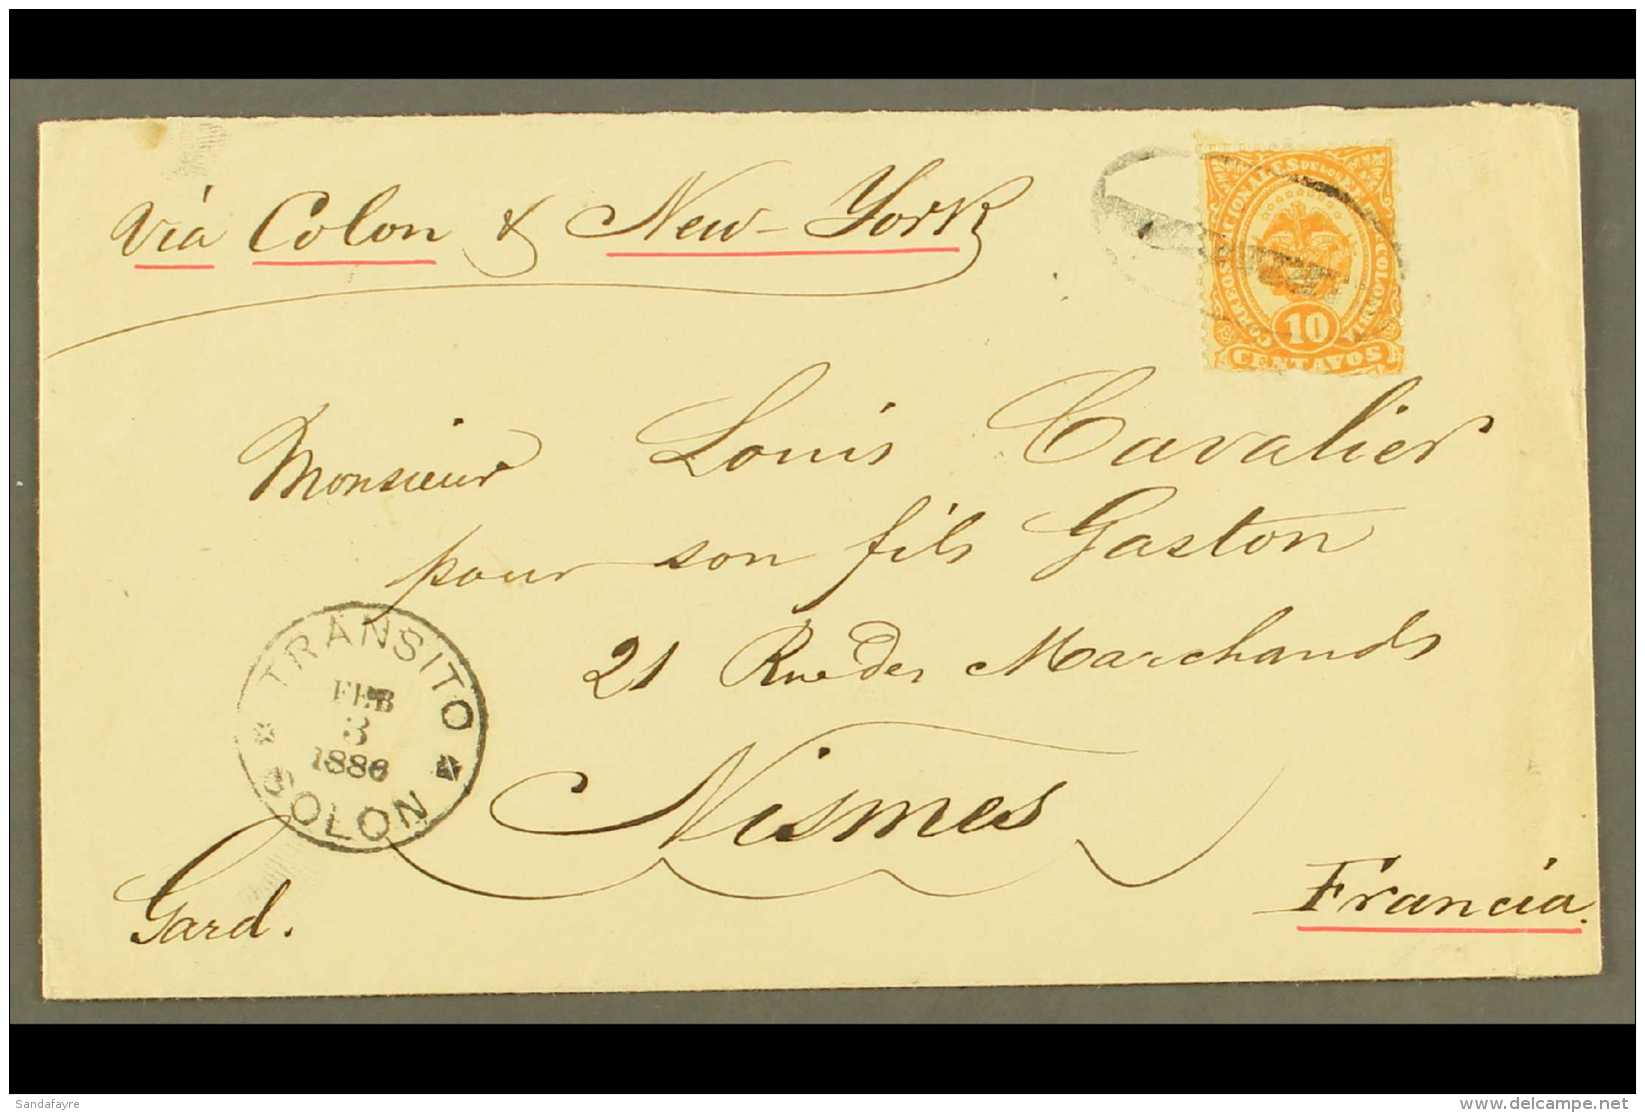 Via Colon & New-York
CORREOS NACIONALES DE LOS EE UU DE COLOMBIA
10
CENTAVOS
Monsieur Louis Cavalier
pour son fils Gaston
21 Rue des Marchands
Nismes
Gard.
Francia.
TRANSITO
FEB
3
1886
COLON
Sandafayre
delcampe.net